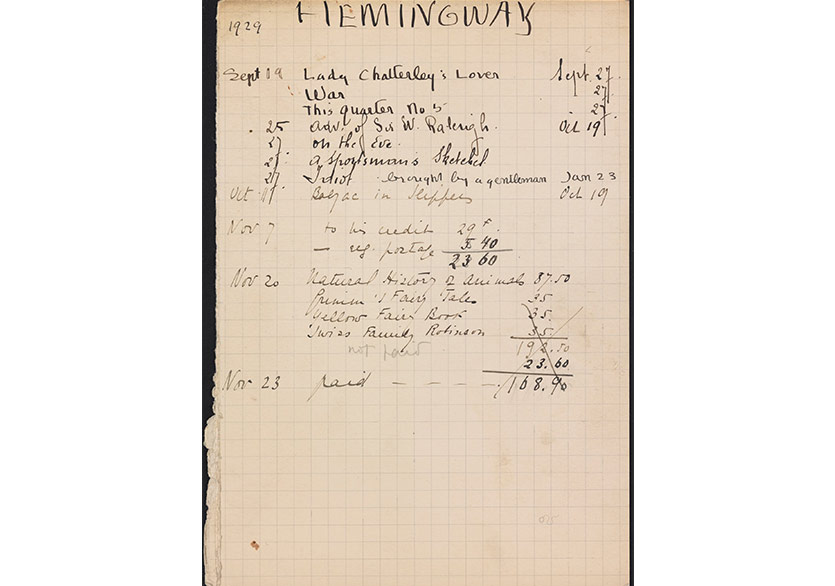 HEMINGWAY
1929
Sept 19 Lady Chatterley's Lover Sept. 27
War 27
This Quarter No 5 27
25 adv. of Sir W. Raleigh. Oct 19
27 on the Eve.
27 a Sportsman's Sketches
27 Idiot brought by a gentleman Jan 23
Oct 11 Balzac in Slippers Oct 19
Nov 7 to his credit 29 F.
— reg. postage 5 40
23 60
Nov 20 Natural History of animals 87.50
Grimm's Fairy Tales 35
Yellow Fairy Book 35.
Swiss Family Robinson 35
not paid 192.50
23.60
Nov 23 paid — — — — 168.90